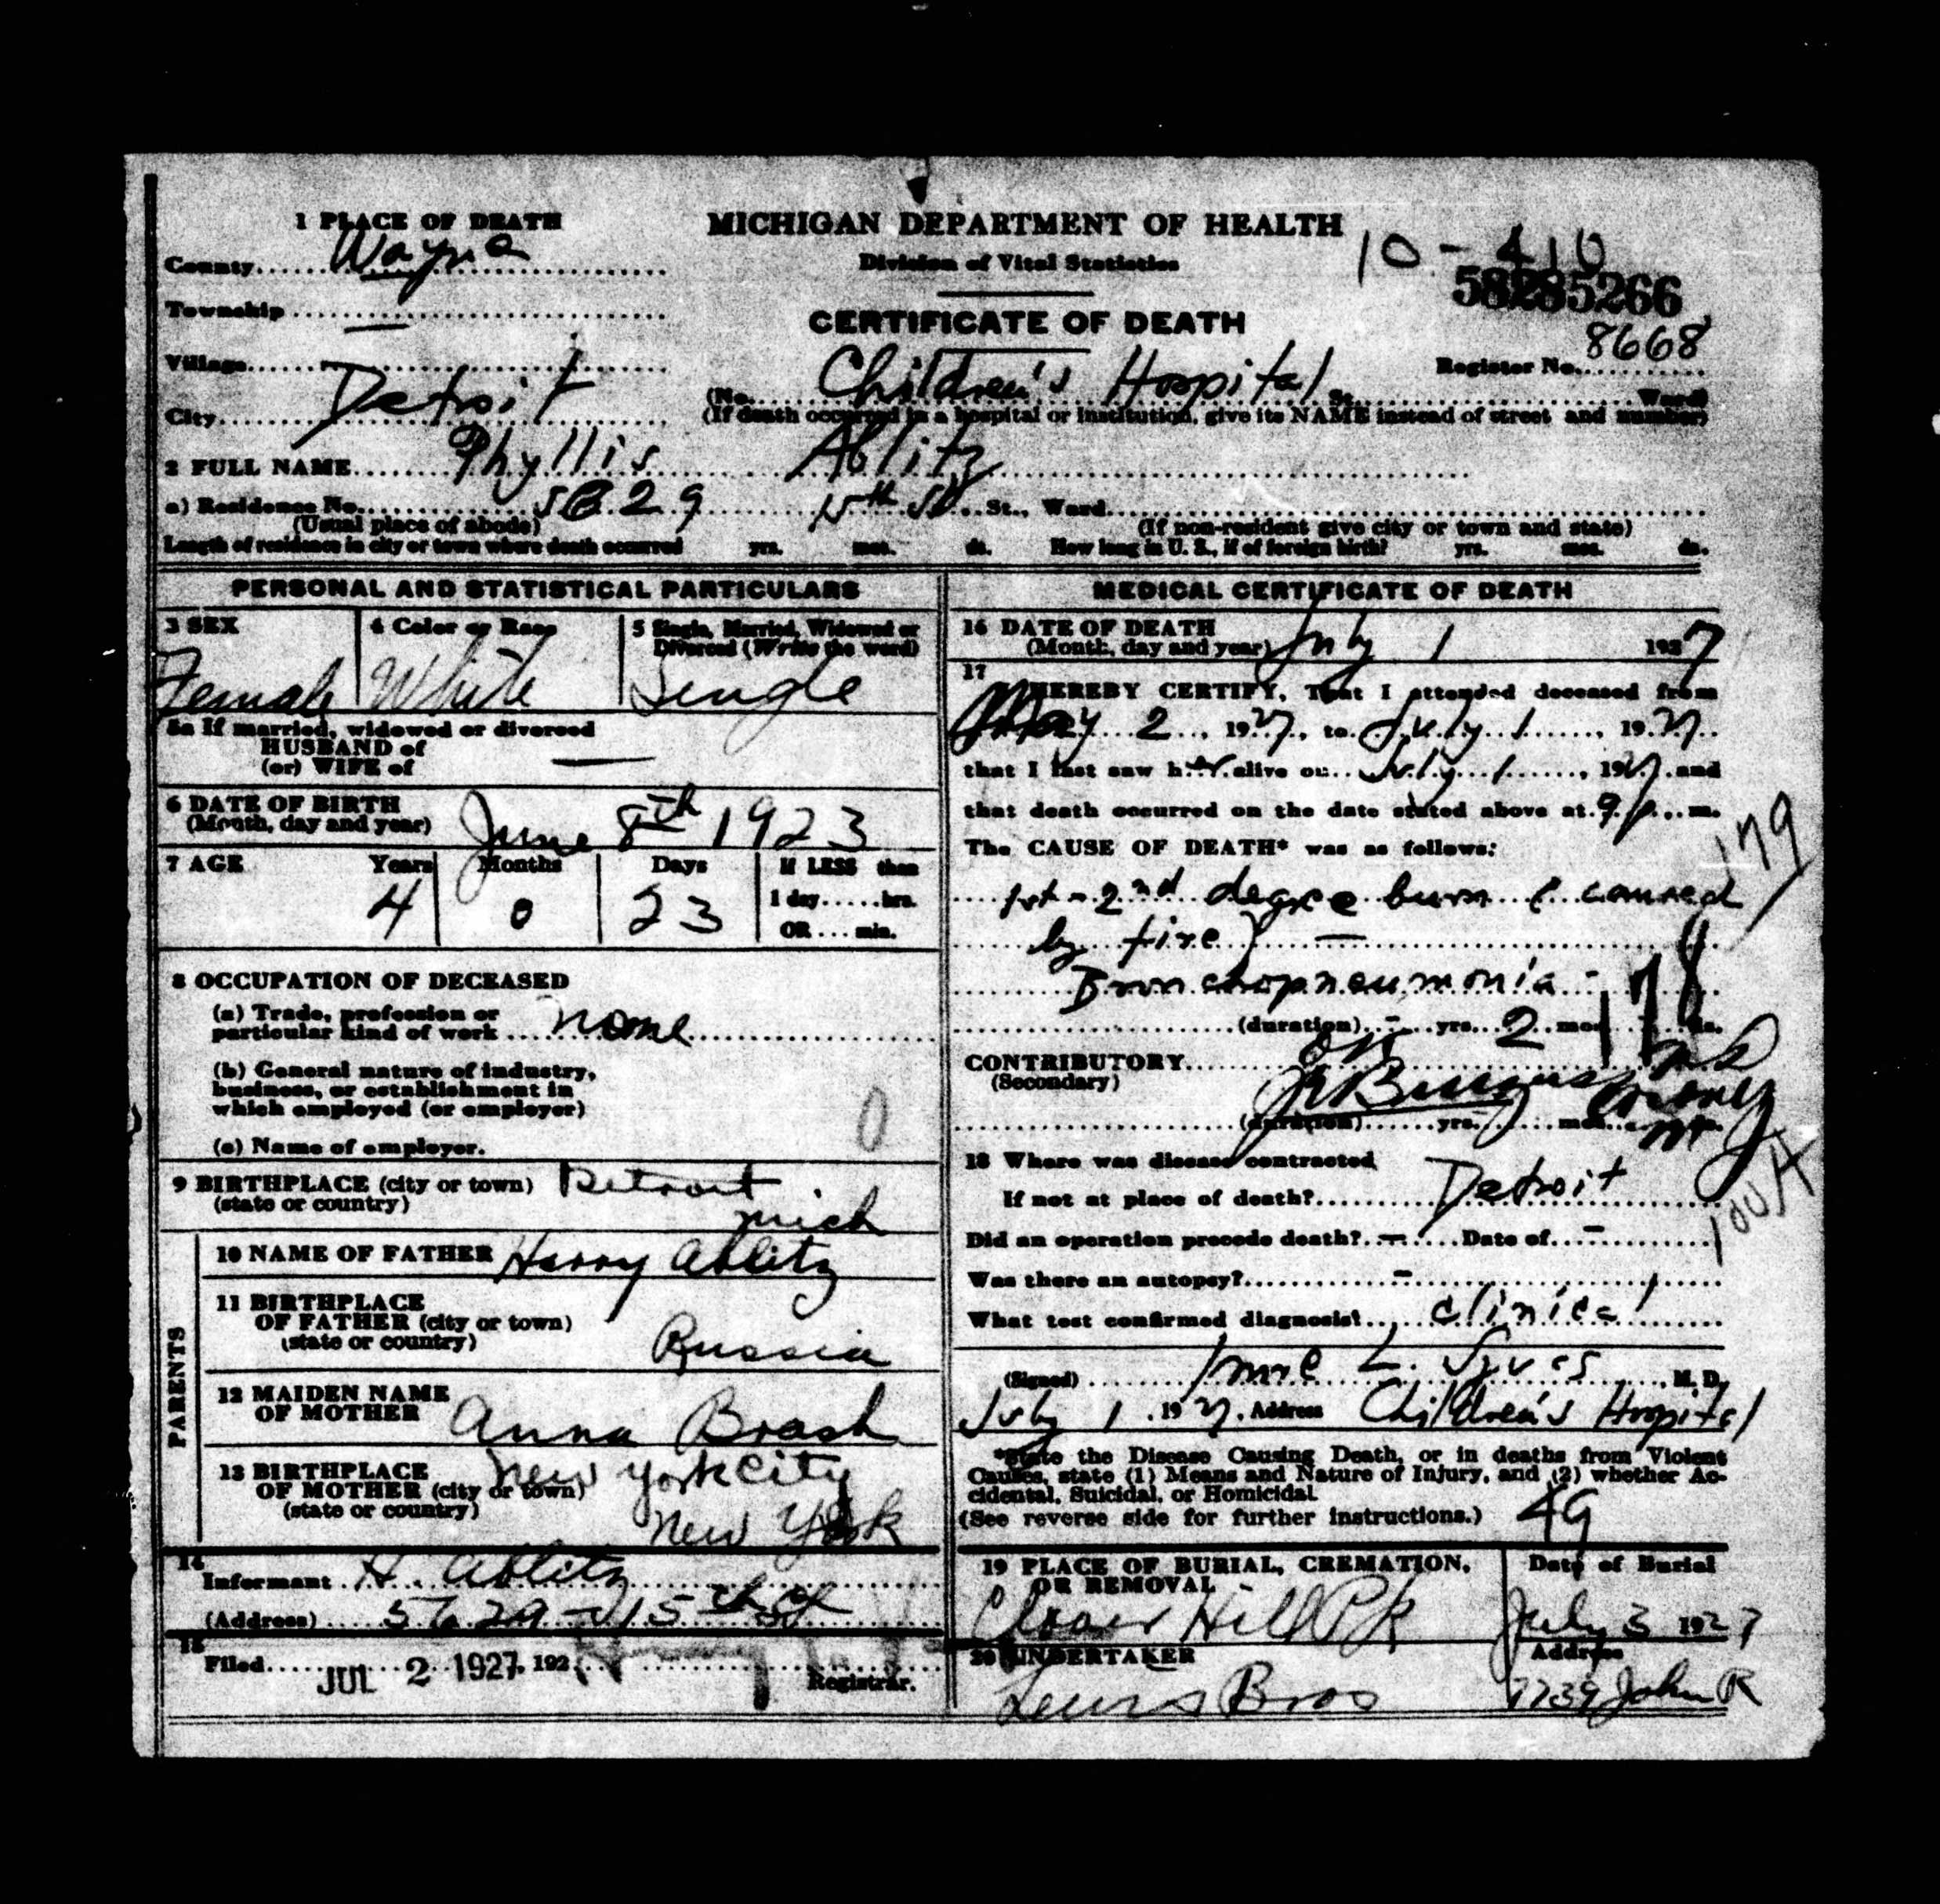 1 PLACE OF DEATH
MICHIGAN DEPARTMENT OF HEALTH
Division of Vital Statistics
10-410
County Wayne
58285266
Township —
CERTIFICATE OF DEATH
Register No. 8668
Village
City Detroit (No. Children's Hospital St. Ward)
(If death occurred in a hospital or institution, give its NAME instead of street and number)
2 FULL NAME Phyllis Ablitz
a) Residence No. 15th St. St., Ward
(Usual place of abode) (If non-resident give city or town and state)
Length of residence in city or town where death occurred yrs. mos. ds. How long in U. S., if of foreign birth? yrs. mos. ds.
PERSONAL AND STATISTICAL PARTICULARS
3 SEX 4 Color or Race 5 Single, Married, Widowed or
Divorced (Write the word)
Female White Single
5a If married, widowed or divorced
HUSBAND of
(or) WIFE of —
6 DATE OF BIRTH
(Month, day and year) June 8th 1923
7 AGE Years Months Days If LESS than
4 0 23 1 day......hrs.
OR....min.
8 OCCUPATION OF DECEASED
(a) Trade, profession or
particular kind of work none
(b) General nature of industry,
business, or establishment in
which employed (or employer)
0
(c) Name of employer.
9 BIRTHPLACE (city or town) Detroit
(state or country) Mich
PARENTS
10 NAME OF FATHER Harry Ablitz
11 BIRTHPLACE
OF FATHER (city or town)
(state or country) Russia
12 MAIDEN NAME
OF MOTHER Anna Brash
13 BIRTHPLACE New York City
OF MOTHER (city or town)
(state or country) New York
14
Informant H. Ablitz
(Address) 5629 - 15th St
15
Filed JUL 2 1927, 192
Registrar.
MEDICAL CERTIFICATE OF DEATH
16 DATE OF DEATH
(Month, day and year) July 1 1927
17
I HEREBY CERTIFY, That I attended deceased from
May 2, 1927, to July 1, 1927
that I last saw her alive on July 1, 1927 and
that death occurred on the date stated above at 9 p. m.
The CAUSE OF DEATH* was as follows:
179
1st - 2nd degree burn (caused
by fire) —
Bronchopneumonia -
178
(duration) - yrs. 2 mos. ds.
CONTRIBUTORY OK
(Secondary) Burgess M.D.
(duration) yrs. mos.
18 Where was disease contracted
If not at place of death? Detroit
100A
Did an operation precede death? — Date of —
Was there an autopsy? -
What test confirmed diagnosis? clinical
(Signed) L. M. D.
July 1, 1927. Address Children's Hospital
*State the Disease Causing Death, or in deaths from Violent
Causes, state (1) Means and Nature of Injury, and (2) whether Ac-
cidental, Suicidal, or Homicidal.
(See reverse side for further instructions.) 49
19 PLACE OF BURIAL, CREMATION, Date of Burial
OR REMOVAL
Clover Hill Pk July 3 1927
20 UNDERTAKER Address
Lewis Bros 7739 John R